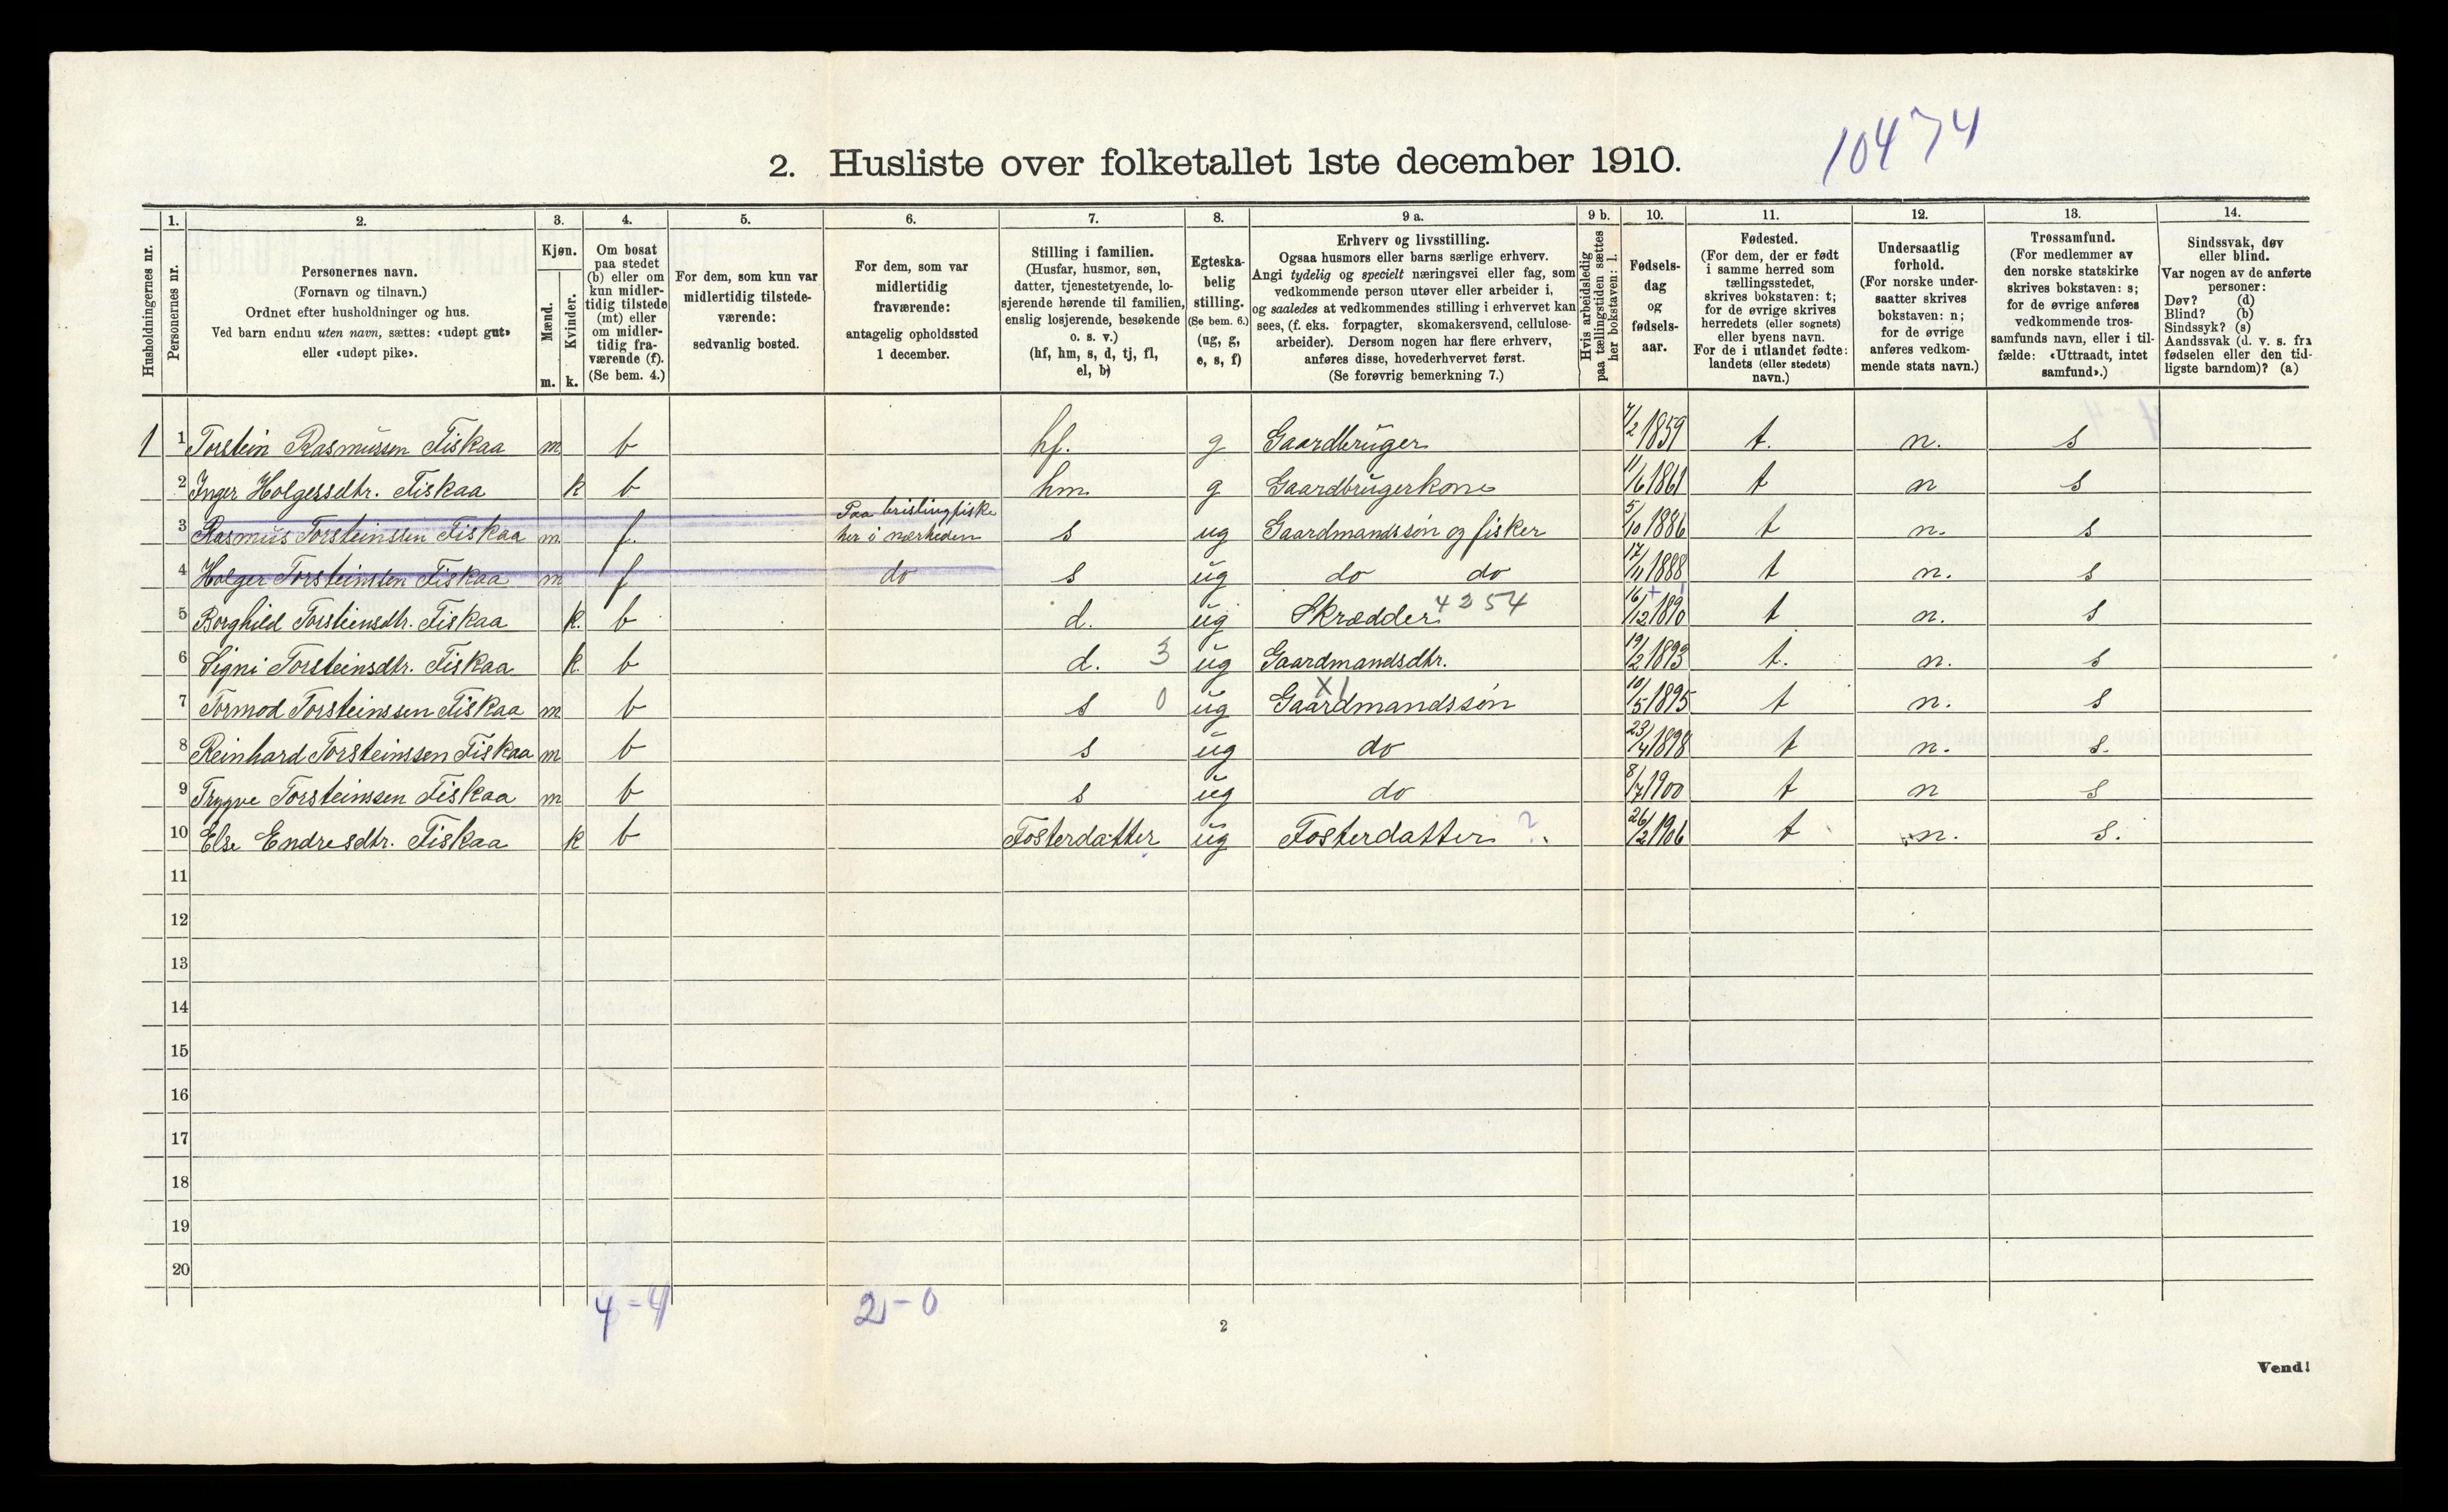 10474
2. Husliste over folketallet 1ste december 1910.
Husholdningernes nr.
1.
Personernes nr.
2.
Personernes navn.
(Fornavn og tilnavn.)
Ordnet efter husholdninger og hus.
Ved barn endnu uten navn, sættes: «udøpt gut»
eller «udøpt pike».
3.
Kjøn.
Mænd.
m.
Kvinder.
k.
4.
Om bosat
paa stedet
(b) eller om
kun midler-
tidig tilstede
(mt) eller
om midler-
tidig fra-
værende (f).
(Se bem. 4.)
5.
For dem, som kun var
midlertidig tilstede-
værende:
sedvanlig bosted.
6.
For dem, som var
midlertidig
fraværende:
antagelig opholdssted
1 december.
7.
Stilling i familien.
(Husfar, husmor, søn,
datter, tjenestetyende, lo-
sjerende hørende til familien,
enslig losjerende, besøkende
o. s. v.)
(hf, hm, s, d, tj, fl,
el, b)
8.
Egteska-
belig
stilling.
(Se bem. 6.)
(ug, g,
e, s, f)
9 a.
Erhverv og livsstilling.
Ogsaa husmors eller barns særlige erhverv.
Angi tydelig og specielt næringsvei eller fag, som
vedkommende person utøver eller arbeider i,
og saaledes at vedkommendes stilling i erhvervet kan
sees, (f. eks. forpagter, skomakersvend, cellulose-
arbeider). Dersom nogen har flere erhverv,
anføres disse, hovederhvervet først.
(Se forøvrig bemerkning 7.)
9 b.
Hvis arbeidsledig
paa tællingstiden sættes
her bokstaven: l.
10.
Fødsels-
dag
og
fødsels-
aar.
11.
Fødested.
(For dem, der er født
i samme herred som
tællingsstedet,
skrives bokstaven: t;
for de øvrige skrives
herredets (eller sognets)
eller byens navn.
For de i utlandet fødte:
landets (eller stedets)
navn.)
12.
Undersaatlig
forhold.
(For norske under-
saatter skrives
bokstaven: n;
for de øvrige
anføres vedkom-
mende stats navn.)
13.
Trossamfund.
(For medlemmer av
den norske statskirke
skrives bokstaven: s;
for de øvrige anføres
vedkommende tros-
samfunds navn, eller i til-
fælde: «Uttraadt, intet
samfund».)
14.
Sindssvak, døv
eller blind.
Var nogen av de anførte
personer:
Døv? (d)
Blind? (b)
Sindssyk? (s)
Aandssvak (d. v. s. fra
fødselen eller den tid-
ligste barndom)? (a)
1 1 Torstein Rasmussen Fiskaa m b hf. g Gaardbruger 7/2 1859 t. n. s
2 Inger Holgersdtr. Fiskaa k b hm. g Gaardbrugerkone 11/6 1861 t n s
3 Rasmus Torsteinssen Fiskaa m. f. Paa brislingfiske her i nærheden s ug Gaardmandssøn og fisker 5/10 1886 t n. s
4 Holger Torsteinssen Fiskaa m f do s ug do do 17/11 1888 t n. s
5 Borghild Torsteinsdtr. Fiskaa k. b d. ug Skrædder 4254 16/12 1890 t n. s
6 Signi Torsteinsdtr. Fiskaa k. b d. 3 ug Gaardmandsdtr. 19/2 1893 t. n. s
7 Tormod Torsteinssen Fiskaa m b s 0 ug Gaardmandssøn X1 10/5 1895 t n. s
8 Reinhard Torsteinssen Fiskaa m b s ug do 23/4 1898 t n. s.
9 Trygve Torsteinssen Fiskaa m b s ug do 8/7 1900 t n s
10 Else Endresdtr. Fiskaa k b Fosterdatter ug Fosterdatter ? 26/2 1906 t n. s.
11
12
13
14
15
16
17
18
19
20
4-4 2-0
2
Vend!